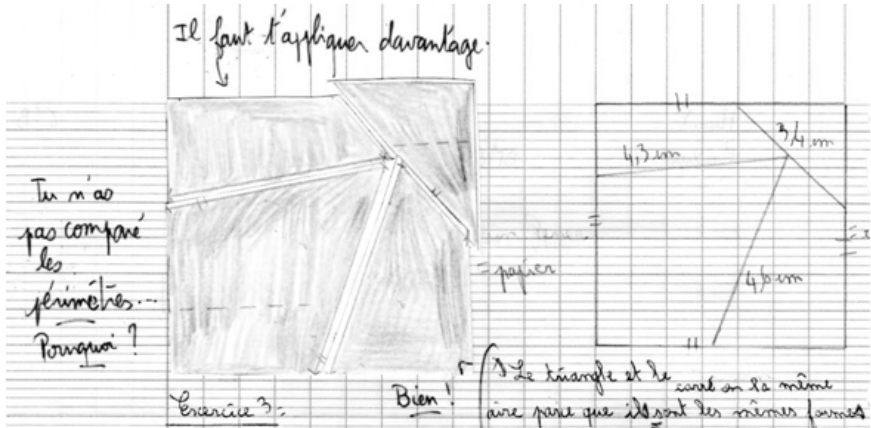 Il faut t'appliquer davantage.
Tu n'as
pas comparé
les
périmètres...
Pourquoi ?
4,3 cm
3,4 cm
4,6 cm
papier
Exercice 3 =
Bien !
Le triangle et le carré on la même
aire parce que ils sont les mêmes formes